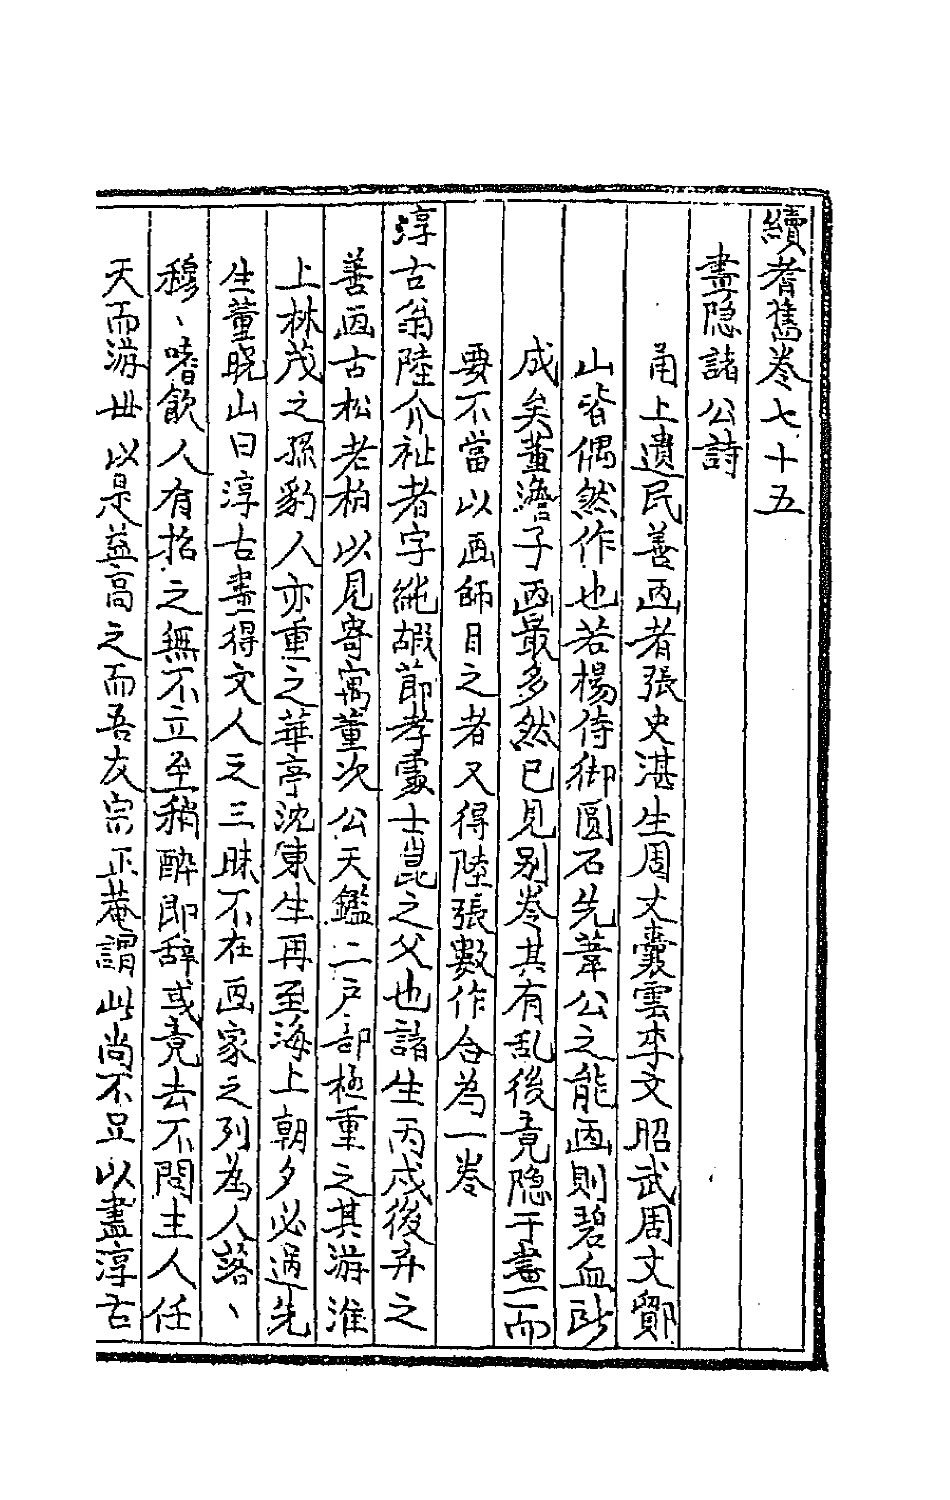 續耆舊卷七十五
畫隐諸公詩
甬上遺民善画者張史湛生周丈囊雲李文昭武周丈鄮
山皆偶然作也若楊侍御圓石先葦公之能画則碧血所
成矣董澹子画最多然已見别卷其有乱後竟隐于畫而
要不當以画師目之者又得陸張數作合為一卷
淳古翁陸介祉者字純嘏節孝處士崑之父也諸生丙戍後弃之
善画古松老柏以見寄寓董次公天鑑二户部極重之其游淮
上林茂之孫豹人亦重之華亭沈東生再至海上朝夕必過先
生董曉山曰淳古畫得文人之三昧不在画家之列為人落丶
穆丶嗜飲人有招之無不立至稍醉即辞或竟去不問主人任
天而游世以是益高之而吾友宗正菴謂此尚不足以盡淳古